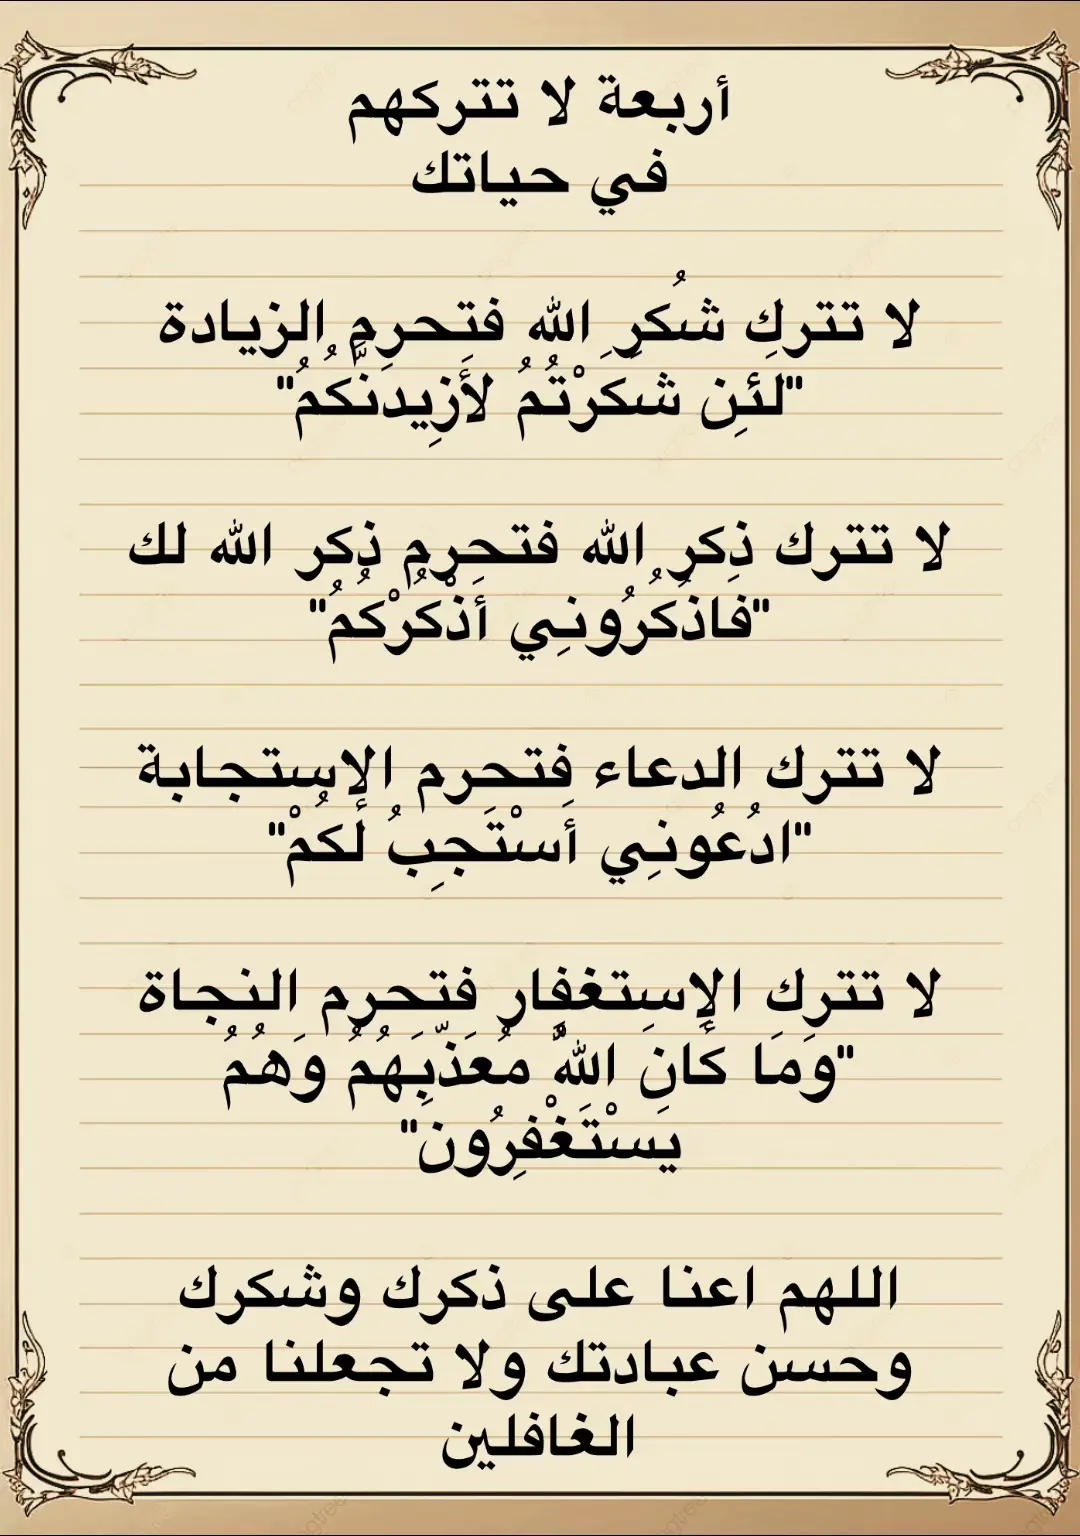 أربعة لا تتركهم
في حياتك
لا تترك شُكر الله فتحرم الزيادة
"لَئِن شَكَرْتُمُ لأَزِيدَنَّكُمُ"
لا تترك ذِكر الله فتحرم ذِكر الله لك
"فَاذْكُرُونِي أَذْكُرْكُمُ"
لا تترك الدعاء فتحرم الإستجابة
"ادُعُونِي أَسْتَجِبُ لَكُمْ"
لا تترك الإستغفار فتحرم النجاة
"وَمَا كَانَ اللهُ مُعَذِّبَهُمُ وَهُمُ
يَسْتَغْفِرُون"
اللهم اعنا على ذكرك وشكرك
وحسن عبادتك ولا تجعلنا من
الغافلين